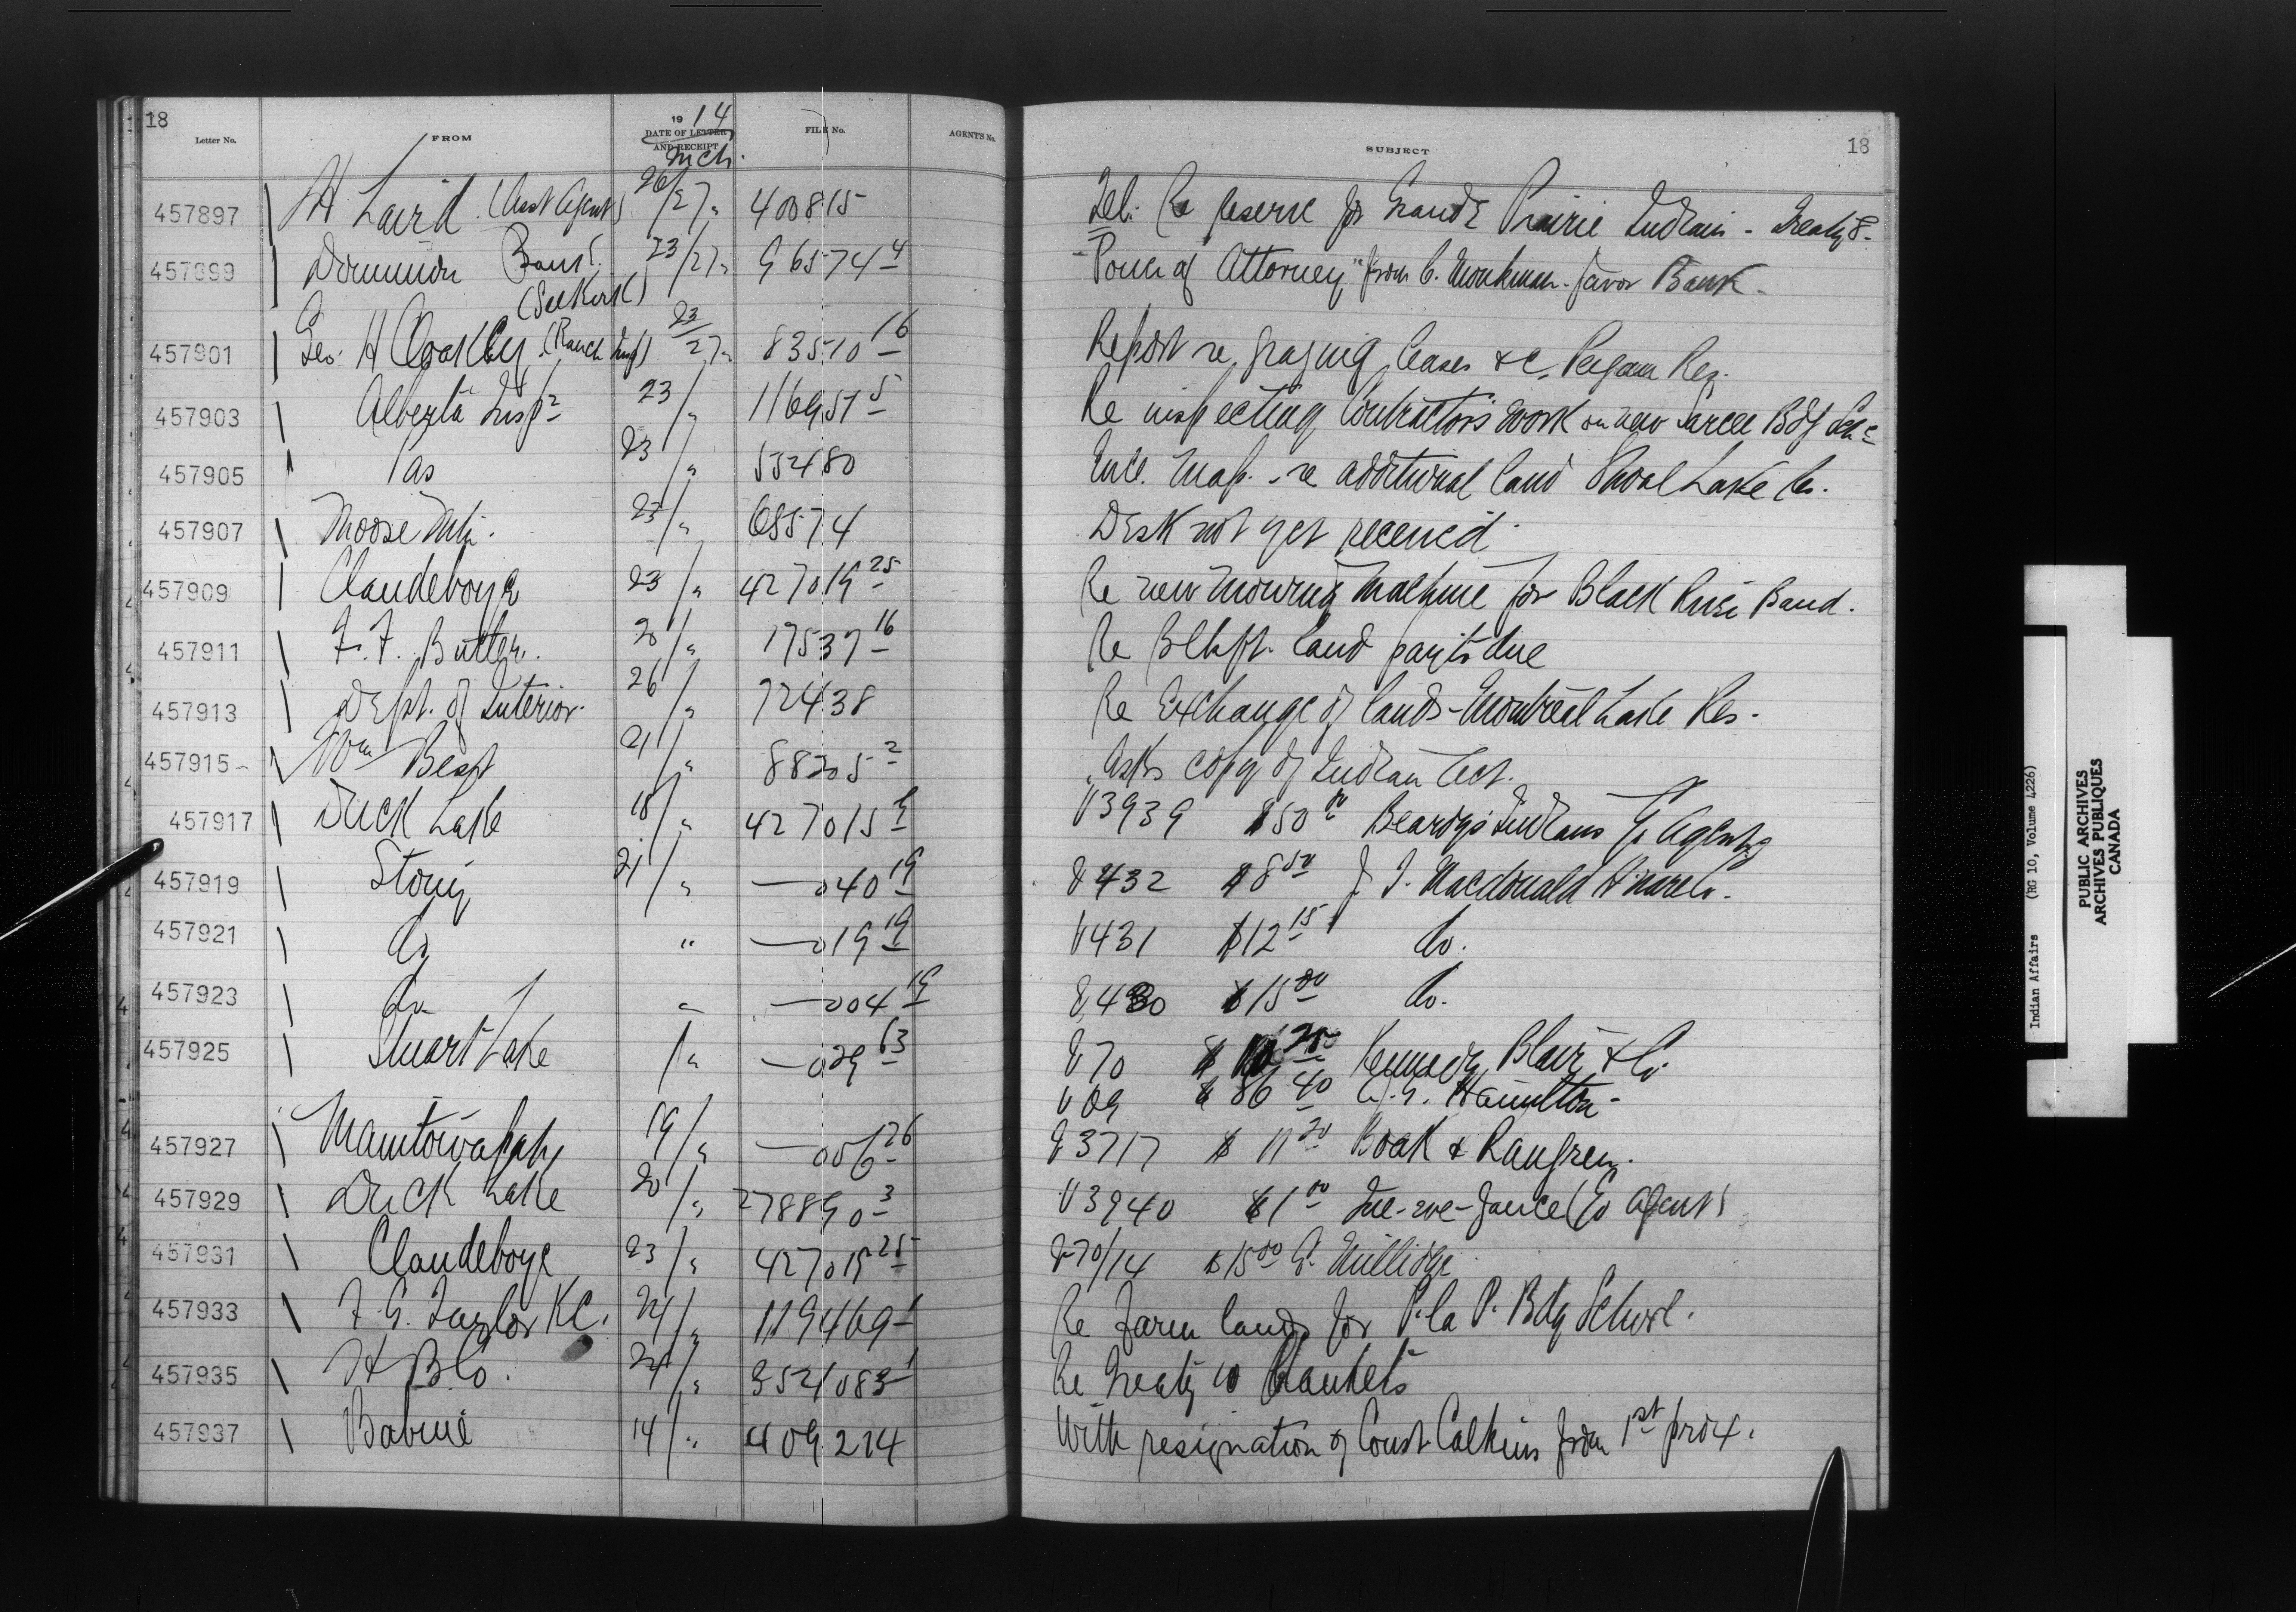 18
Letter No. FROM 1914 DATE OF LETTER AND RECEIPT Mch. FILE No. AGENT'S No. SUBJECT 18
457897 H Laird (Asst Agent) 26/27 " 400815 Tel. Re Reserve for Grande Prairie Indians - Treaty 8 -
457899 Dominion Bank (Selkirk) 23/27 " 96574 4 "Power of Attorney" from C. Monkman - favor Bank -
457901 Geo. H (Ranch Insp) 23/27 " 83510 16 Report re grazing leases &c. Peigan Res.
457903 Alberta Insp 23/" 116951 5 Re inspecting Contractors work on new Sarcee Bdg Sch
457905 Pas 23/" 552480 Encl. Map - re additional land Shoal Lake Res.
457907 Moose Mtn. 23/" 68574 Desk not yet received.
457909 Clandeboye 23/" 427019 25 Re new mowing machine for Black River Band.
457911 F. F. Butler. 20/" 17537 16 Re Blkft. land paymts due
457913 Dept. of Interior. 26/" 72438 Re Exchange of lands - Montreal Lake Res.
457915 Wm 21/" 88305 2 Asks copy of Indian Act.
457917 Duck Lake 18/" 427015 9 V3939 $50 00 Beardy's Indians Agency
457919 Stony 21/" — 040 19 V432 $8 50 Macdonald
457921 Do " — 019 19 V431 $12 15 Do.
457923 Do " — 004 19 V430 $15 00 Do.
457925 Stuart Lake /" — 029 63 V70 $ Kennedy Blair & Co.
V69 $86 40 Hamilton -
457927 Manitowapah 19/" — 006 26 V3717 $11 20 Boak &
457929 Duck Lake 20/" 278890 3 V3940 $1 00 (To Agent)
457931 Clandeboye 23/" 427019 25 V70/14 $15 00 Millidge
457933 F. G. Taylor KC. 24/" 119469 1 Re Farm lands for P. la P. Bdg School.
457935 H B Co. 24/" 352108 Re Treaty 10 Blankets
457937 Babine 14/" 409214 With resignation of Const Calkins from 1st prox.
Indian Affairs (RG 10, Volume 4226)
PUBLIC ARCHIVES
ARCHIVES PUBLIQUES
CANADA